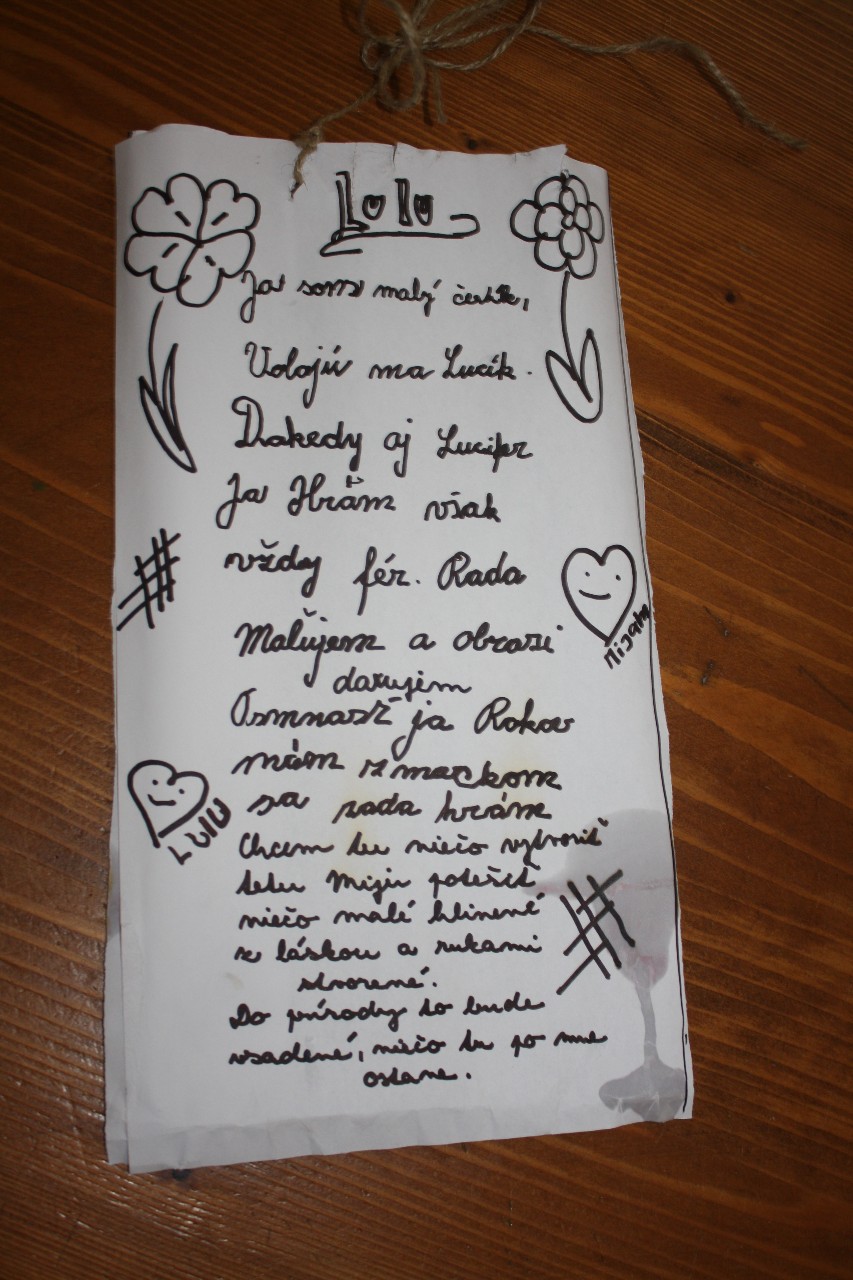 Lulu
Ja som malý čertík,
Volajú ma Lucík.
Dakedy aj Lucifer
Ja Hrám však
vždy fér. Rada
Maľujem a obrazi
darujem
Osmnasť ja Rokov
mám z mačkom
sa rada hrám
Chcem tu niečo vytvoriť
tetu Miju potešiť
niečo malé hlinené
z láskou a rukami
stvorené.
Do prírody to bude
vsadené, niečo tu po mne
ostane.
LULU